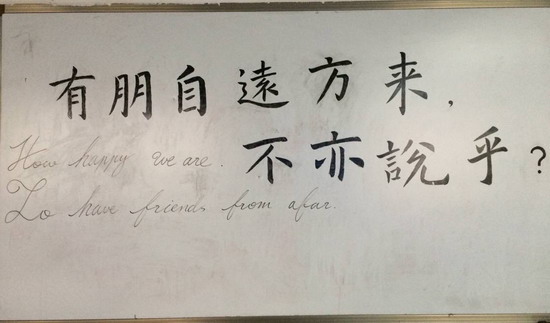 有朋自遠方来，
How happy we are.
不亦説乎？
To have friends from afar.